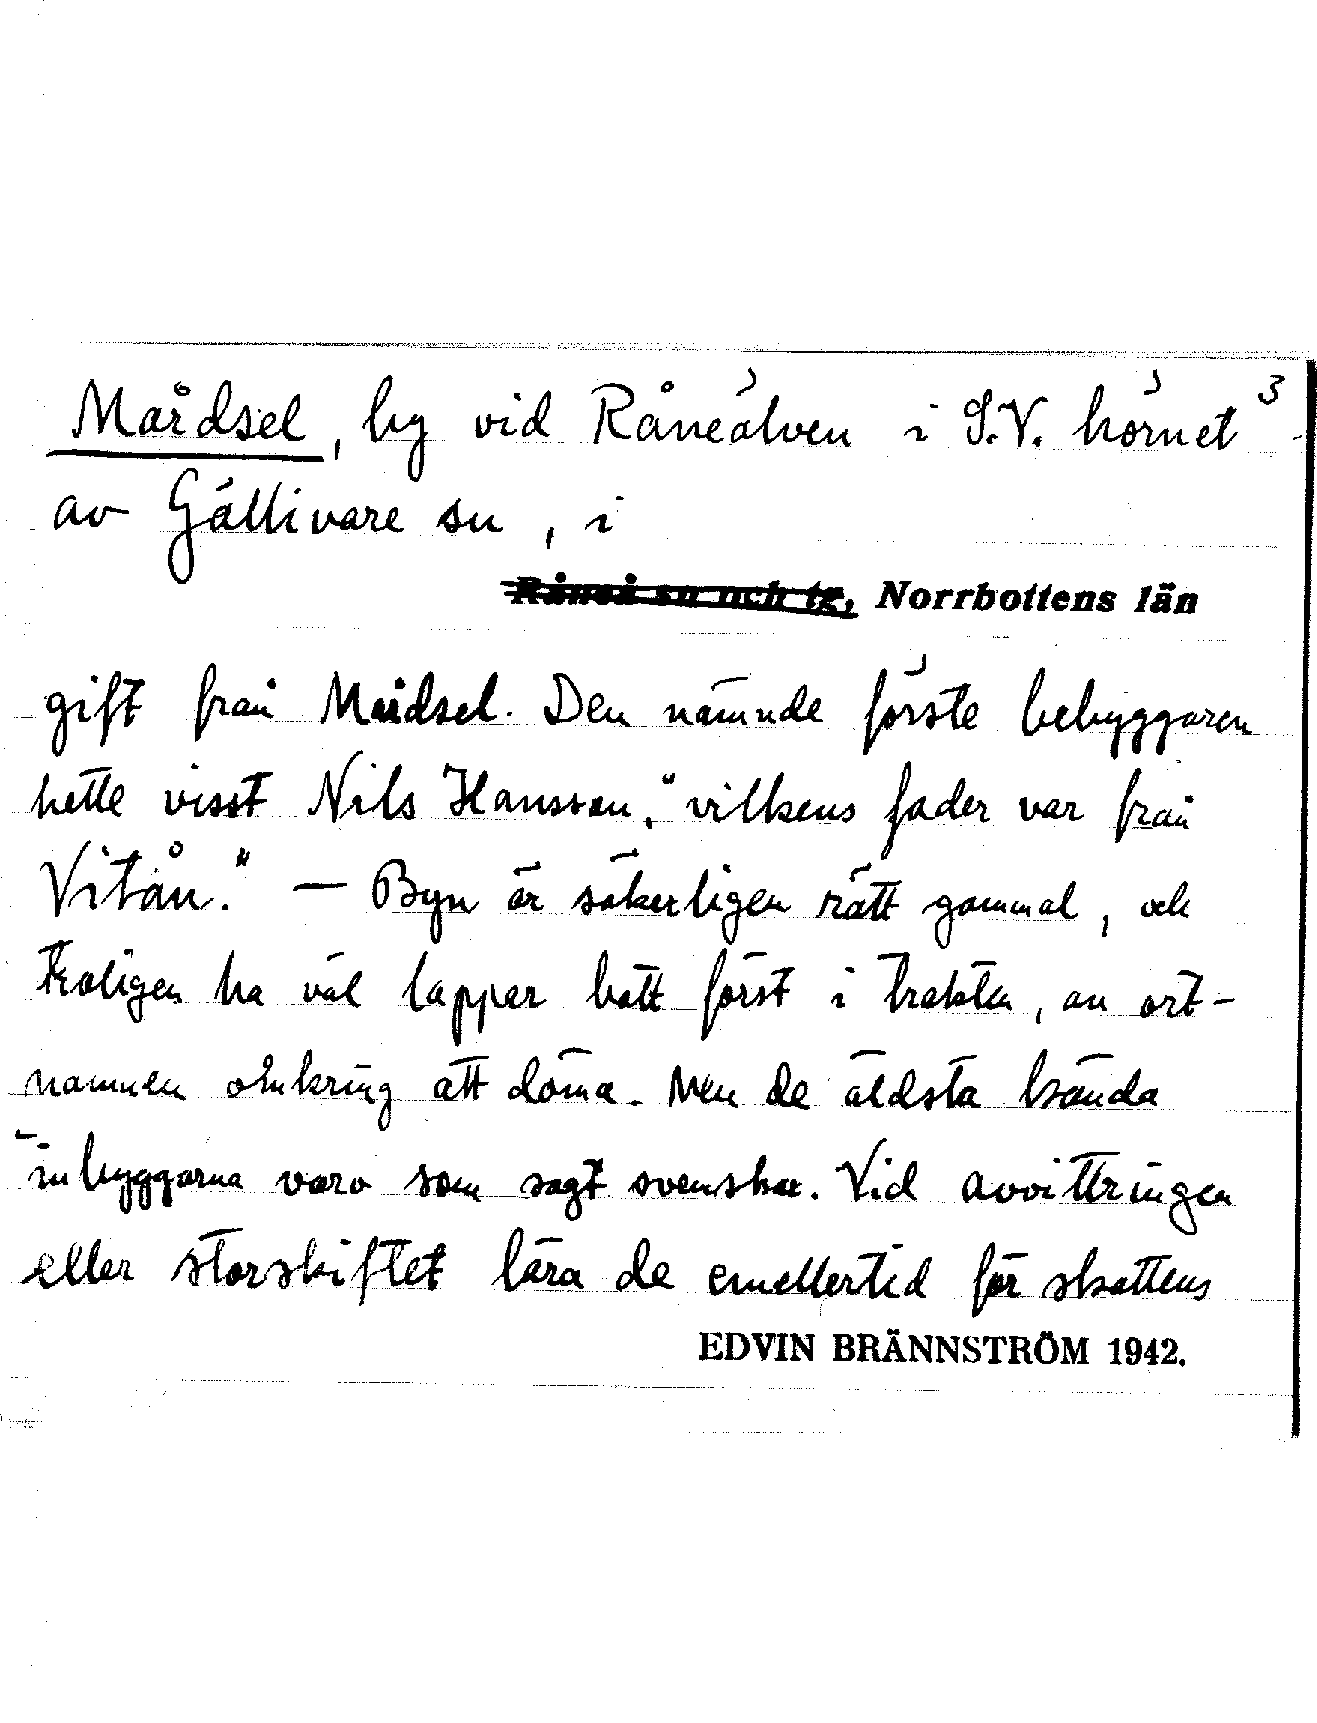 Mårdsel, by vid Råneälven i S.V. hörnet 3
av Gällivare sn, i
Råneå sn och tg, Norrbottens län
gift från Mårdsel. Den nämnde förste bebyggaren
hette visst Nils Hansson, "vilkens fader var från
Vitån." — Byn är säkerligen rätt gammal, och
troligen ha väl lappar bott först i trakten, av ort-
namnen omkring att döma. Men de äldsta kända
inbyggarna voro som sagt svenskar. Vid avvittringen
eller storskiftet lära de emellertid för skattens
EDVIN BRÄNNSTRÖM 1942.